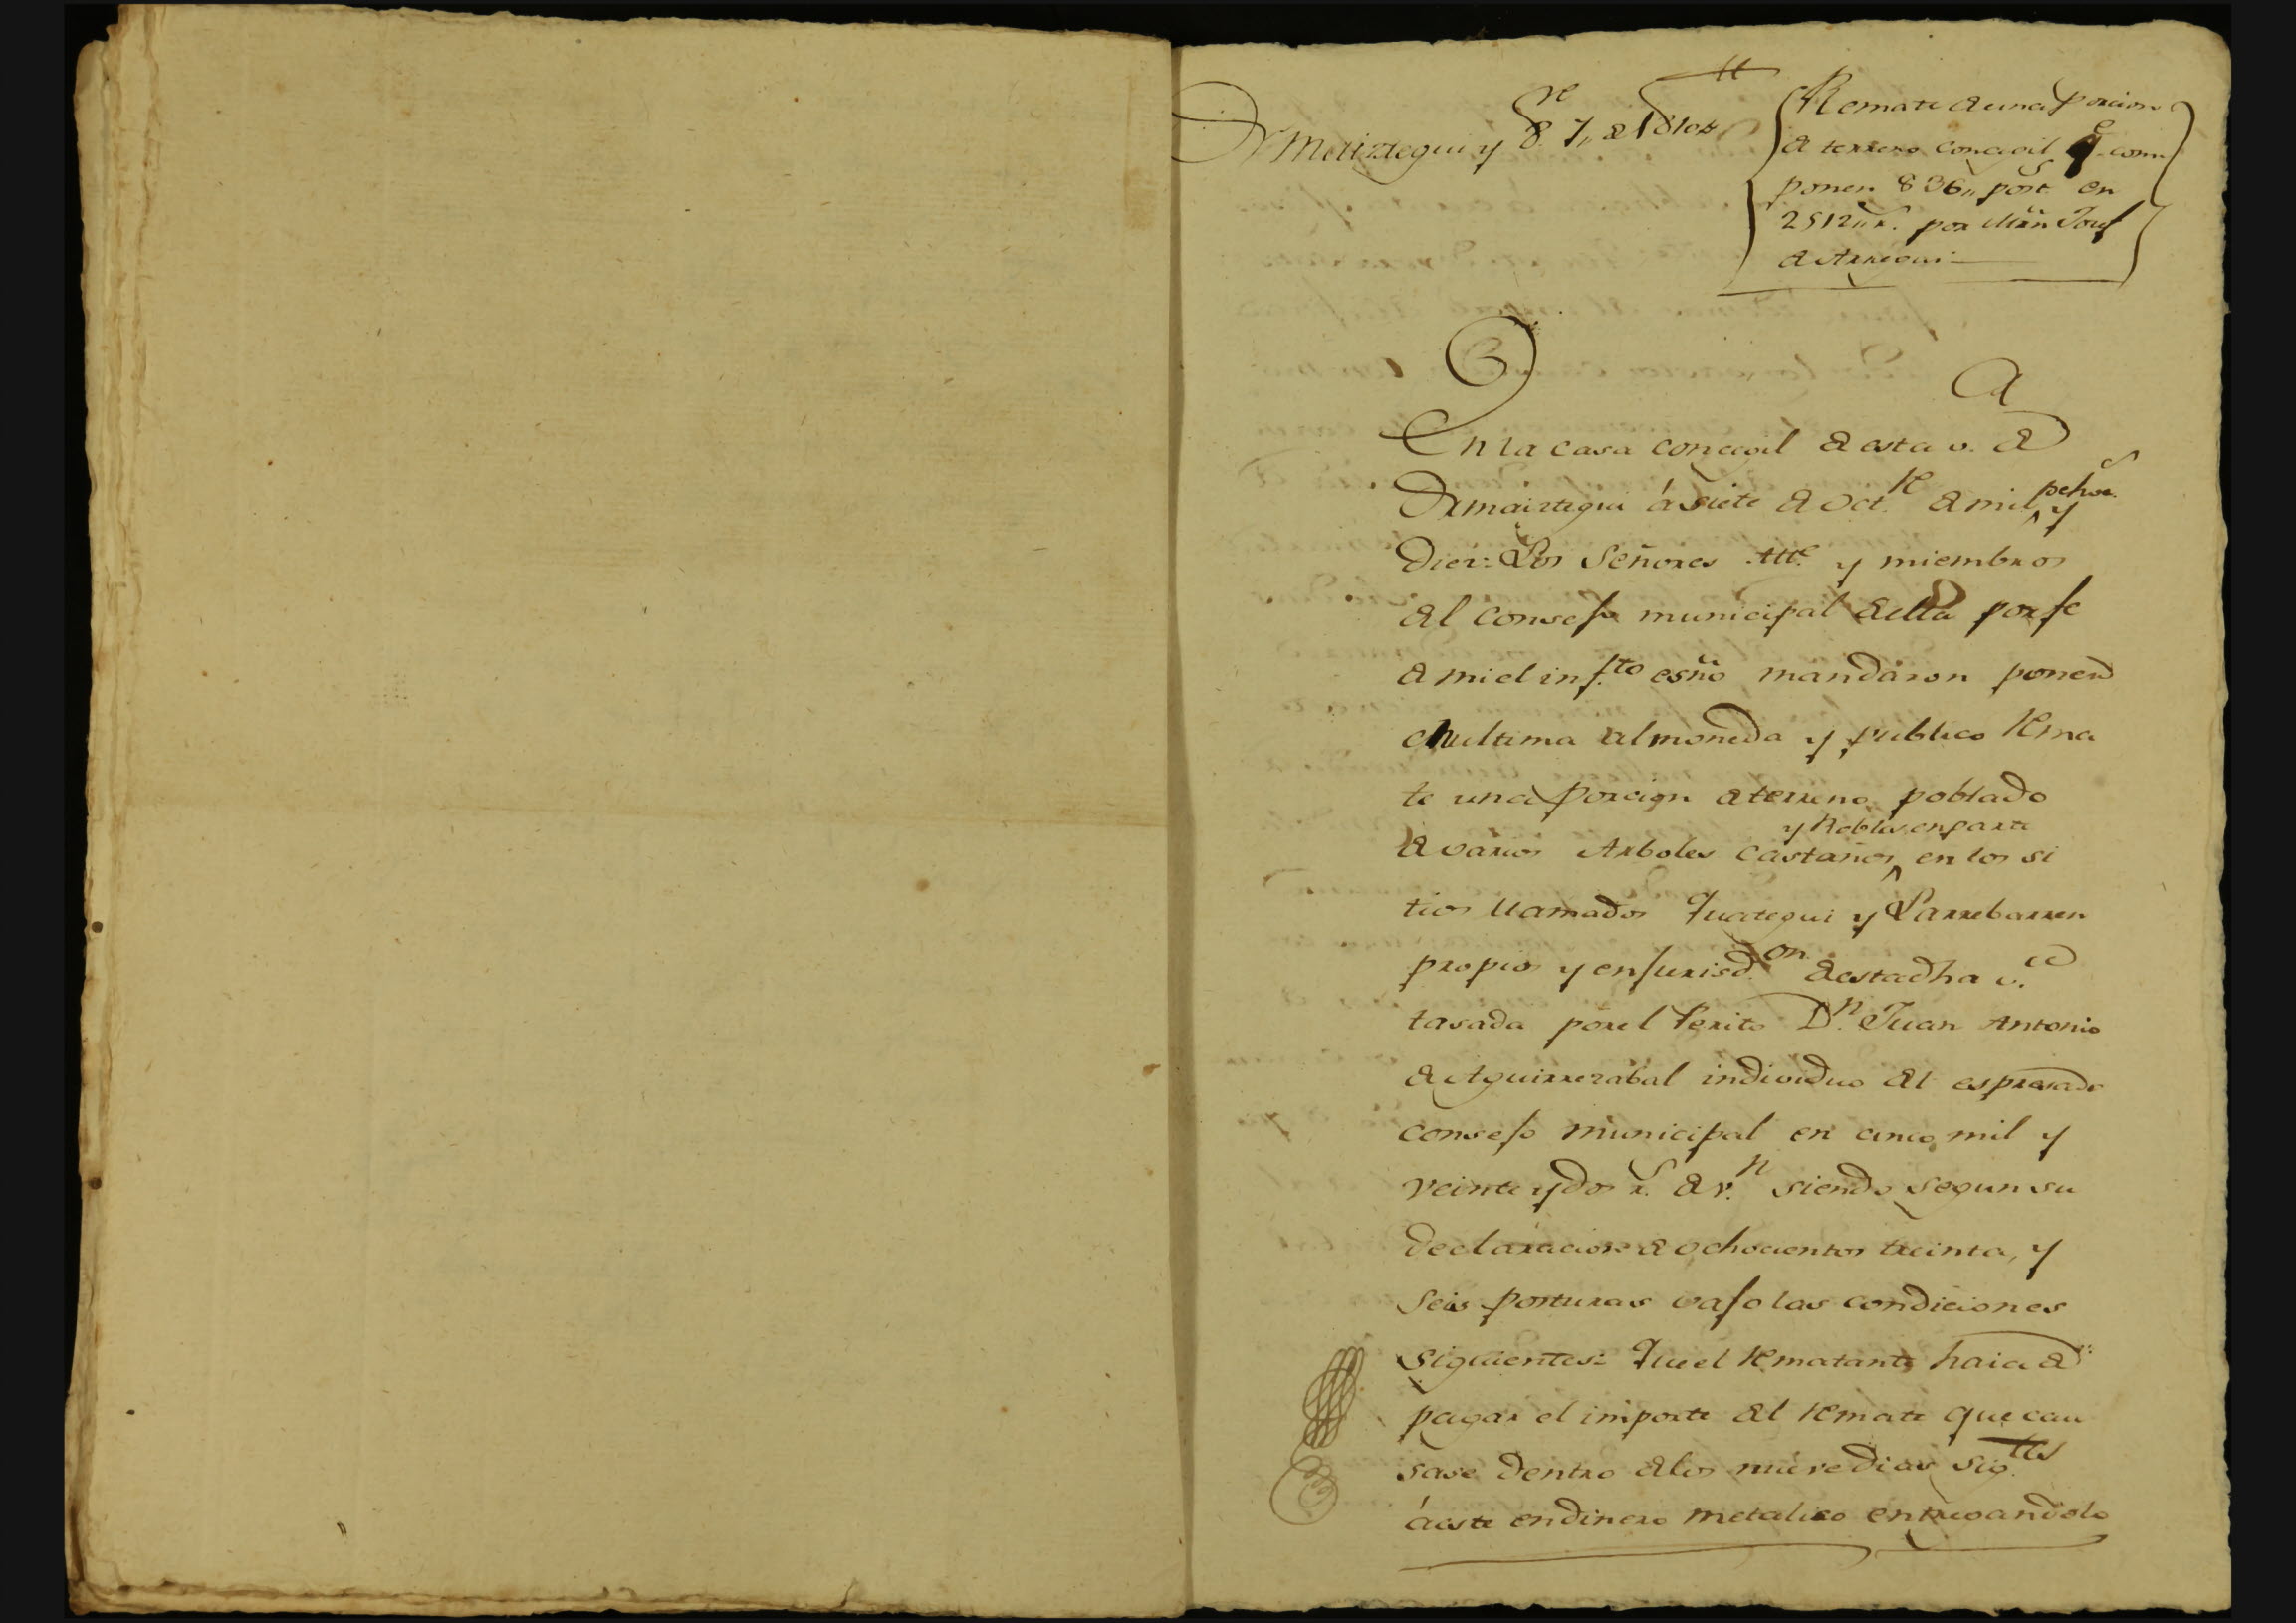 Ormaiztegui y 8.re 7,, de 1810,,
Remate de una porcion
de terreno concegil q.e com
ponen 836,, post.s en
2512,, r.s por Mrn Josef
de Arregui
En la casa concegil de esta v.a de
Ormaiztegui á siete de Oct.re de mil ochos. y
diez: Los Señores Alle. y miembros
del consejo municipal de ella por fe
de mi el inf.to esño mandaron poner
en ultima almoneda y publico rema
te una porcion de terreno poblado
de varios Arboles castaños y Robles en parte en los si
tios llamados y Larrebarren
propios y en jurisd.on de esta dha v.a
tasada por el Perito D.n Juan Antonio
de Aguirrezabal individuo del espresado
consejo municipal en cinco mil y
veinte y dos r.s de v.n siendo segun su
declaracion de ochocientos treinta, y
seis posturas vajo las condiciones
siguientes: Que el rematante haia de
pagar el importe del remate que cau
sase dentro de los nueve dias sig.tes
á este en dinero metalico entregandolo